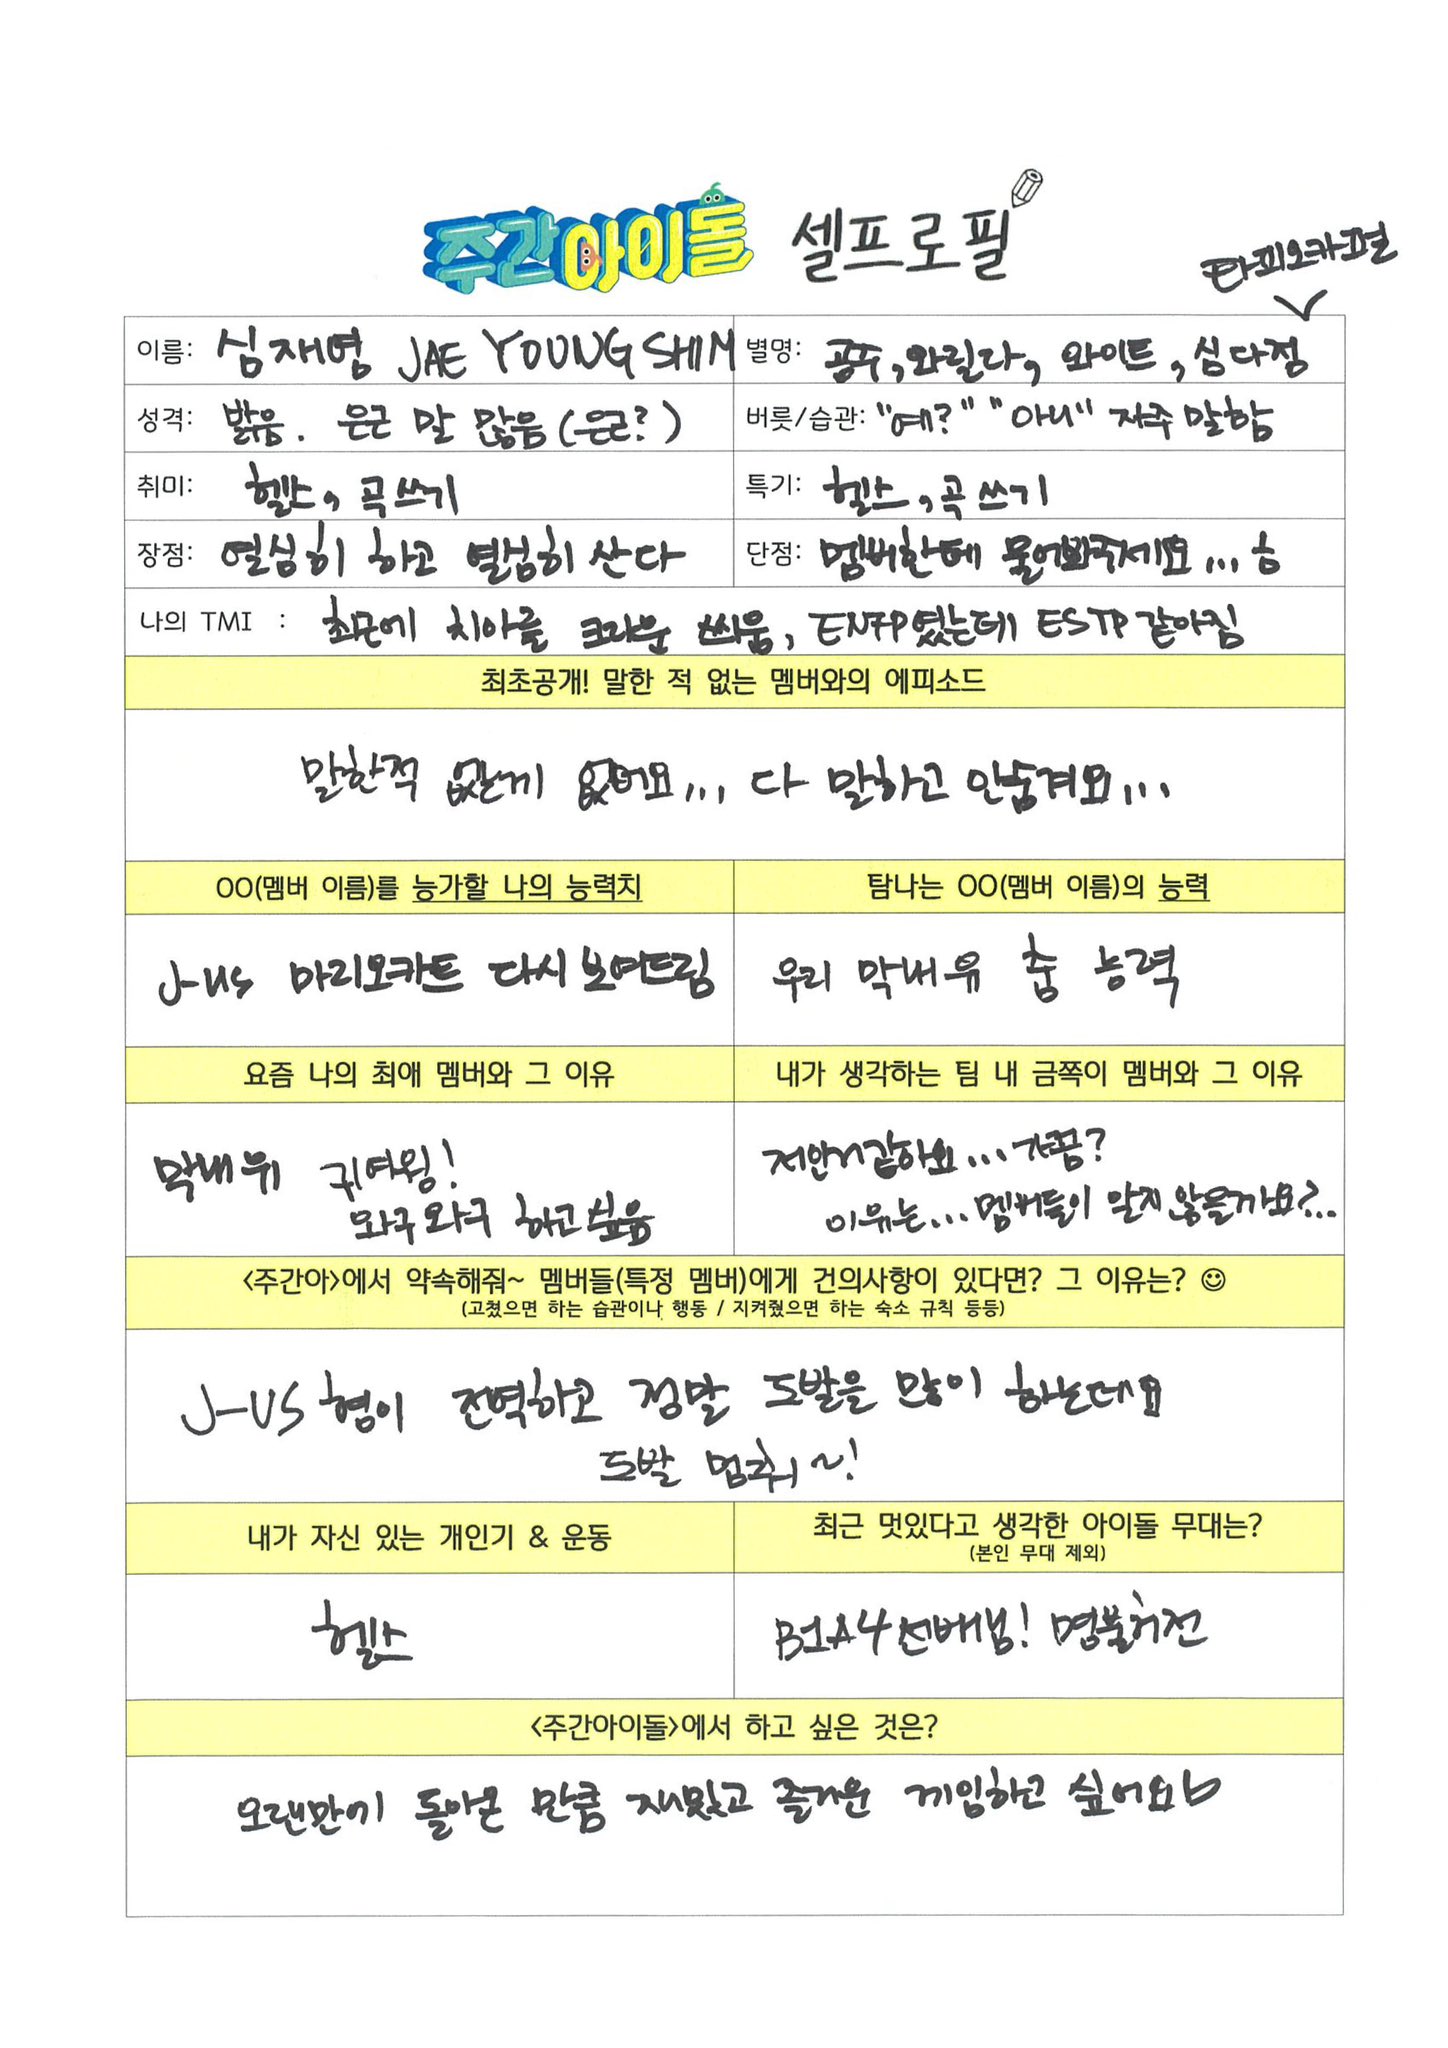 주간아이돌 셀프로필
타피오카펄
이름: 심재영 JAE YOUNG SHIM
별명: 공주, 와릴라, 와이트, 심다점
성격: 밝음. 은근 말 많음 (은근?)
버릇/습관: "예?" "아니" 자주 말함
취미: 헬스, 곡쓰기
특기: 헬스, 곡쓰기
장점: 열심히 하고 열심히 산다
단점: 멤버한테 물어봐주세요... ㅎ
나의 TMI : 최근에 치아를 크라운 씌움, ENFP였는데 ESTP 같아짐
최초공개! 말한 적 없는 멤버와의 에피소드
말한적 없는게 없어요... 다 말하고 안숨겨요...
OO(멤버 이름)를 능가할 나의 능력치
탐나는 OO(멤버 이름)의 능력
J-US 마리오카트 다시 보여드림
우리 막내 유 춤 능력
요즘 나의 최애 멤버와 그 이유
내가 생각하는 팀 내 금쪽이 멤버와 그 이유
막내 유 귀여웡!
와구와구 하고싶음
저인거같아요... 가끔?
이유는... 멤버들이 알지 않을까요?...
<주간아>에서 약속해줘~ 멤버들(특정 멤버)에게 건의사항이 있다면? 그 이유는? ☺
(고쳤으면 하는 습관이나 행동 / 지켜줬으면 하는 숙소 규칙 등등)
J-US 형이 전역하고 정말 도발을 많이 하는데요
도발 멈춰~!
내가 자신 있는 개인기 & 운동
최근 멋있다고 생각한 아이돌 무대는?
(본인 무대 제외)
헬스
B1A4 선배님! 명불허전
<주간아이돌>에서 하고 싶은 것은?
오랜만에 돌아온 만큼 재밌고 즐거운 게임하고 싶어요